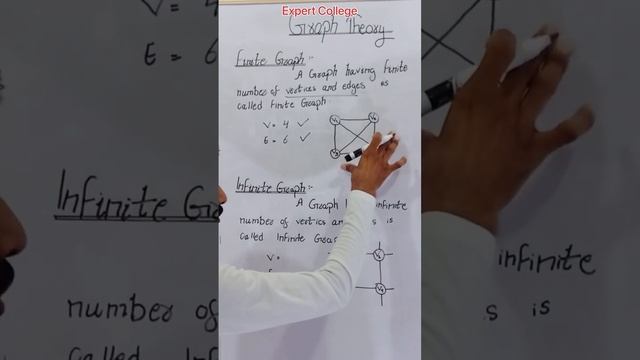 Expert College
Graph Theory
Finite Graph :-
A Graph having finite
number of vertices and edges is
called Finite Graph
V = 4 ✓
E = 6 ✓
V₁
Infinite Graph :-
A Graph infinite
number of vertices is
called Infinite
V =
V = 4
E = 6
Infinite
number of
called
infinite
is